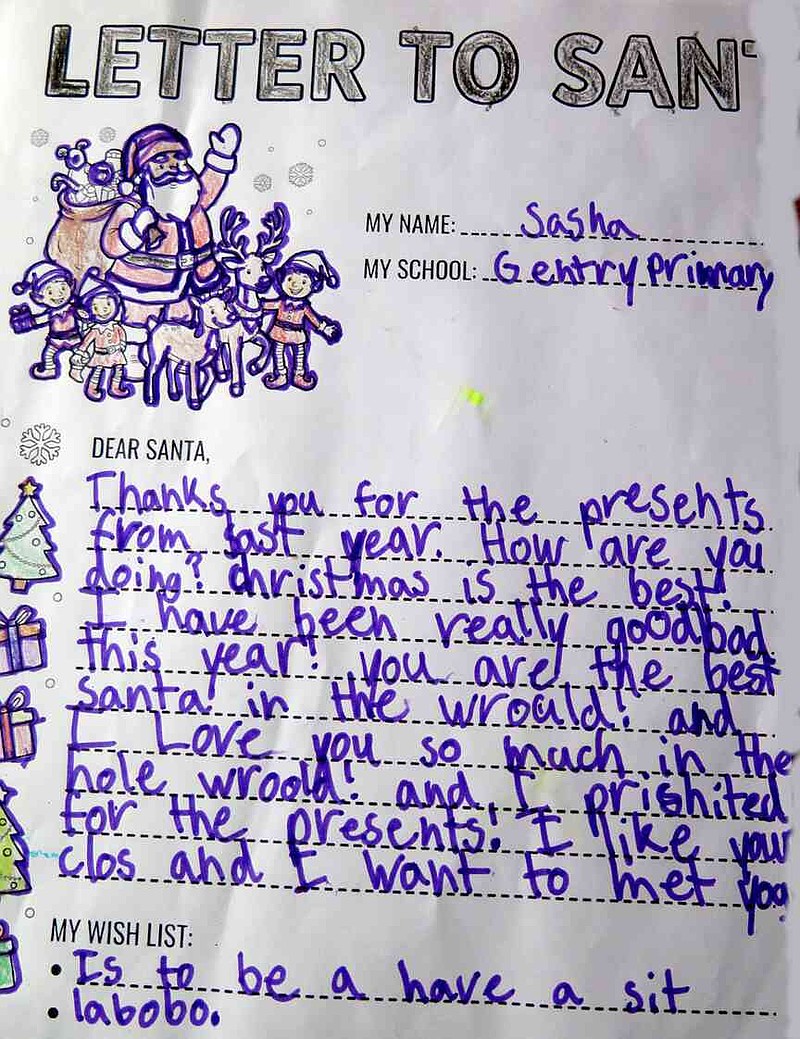 LETTER TO SAN
MY NAME: Sasha
MY SCHOOL: Gentry Primary
DEAR SANTA,
Thanks you for the presents
from last year. How are you
doing? christmas is the best!
I have been really good/bad
this year! you are the best
santa in the wroald! and
I Love you so much in the
hole wroold! and I prishited
for the presents! I like your
clos and I want to met you
MY WISH LIST:
• Is to be a have a sit
• labobo.